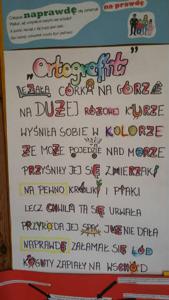 naprawdę
na prawdę
„Ortografitti”
LEŻAŁA CÓRKA NA GÓRZE
NA DUŻEJ RÓŻOWEJ KURZE
WYŚNIŁA SOBIE W KOLORZE
ŻE MOŻE POJEDZIE NAD MORZE
PRZYŚNIŁY JEJ SIĘ ZWIERZAKI
NA PEWNO KRÓLIKI I PTAKI
LECZ CHWILA TA SIĘ URWAŁA
PRZYRODA JEJ SPAĆ JUŻ NIE DAŁA
NAPRAWDĘ ZAŁAMAŁ SIĘ LÓD
KOGUTY ZAPIAŁY NA WSCHÓD